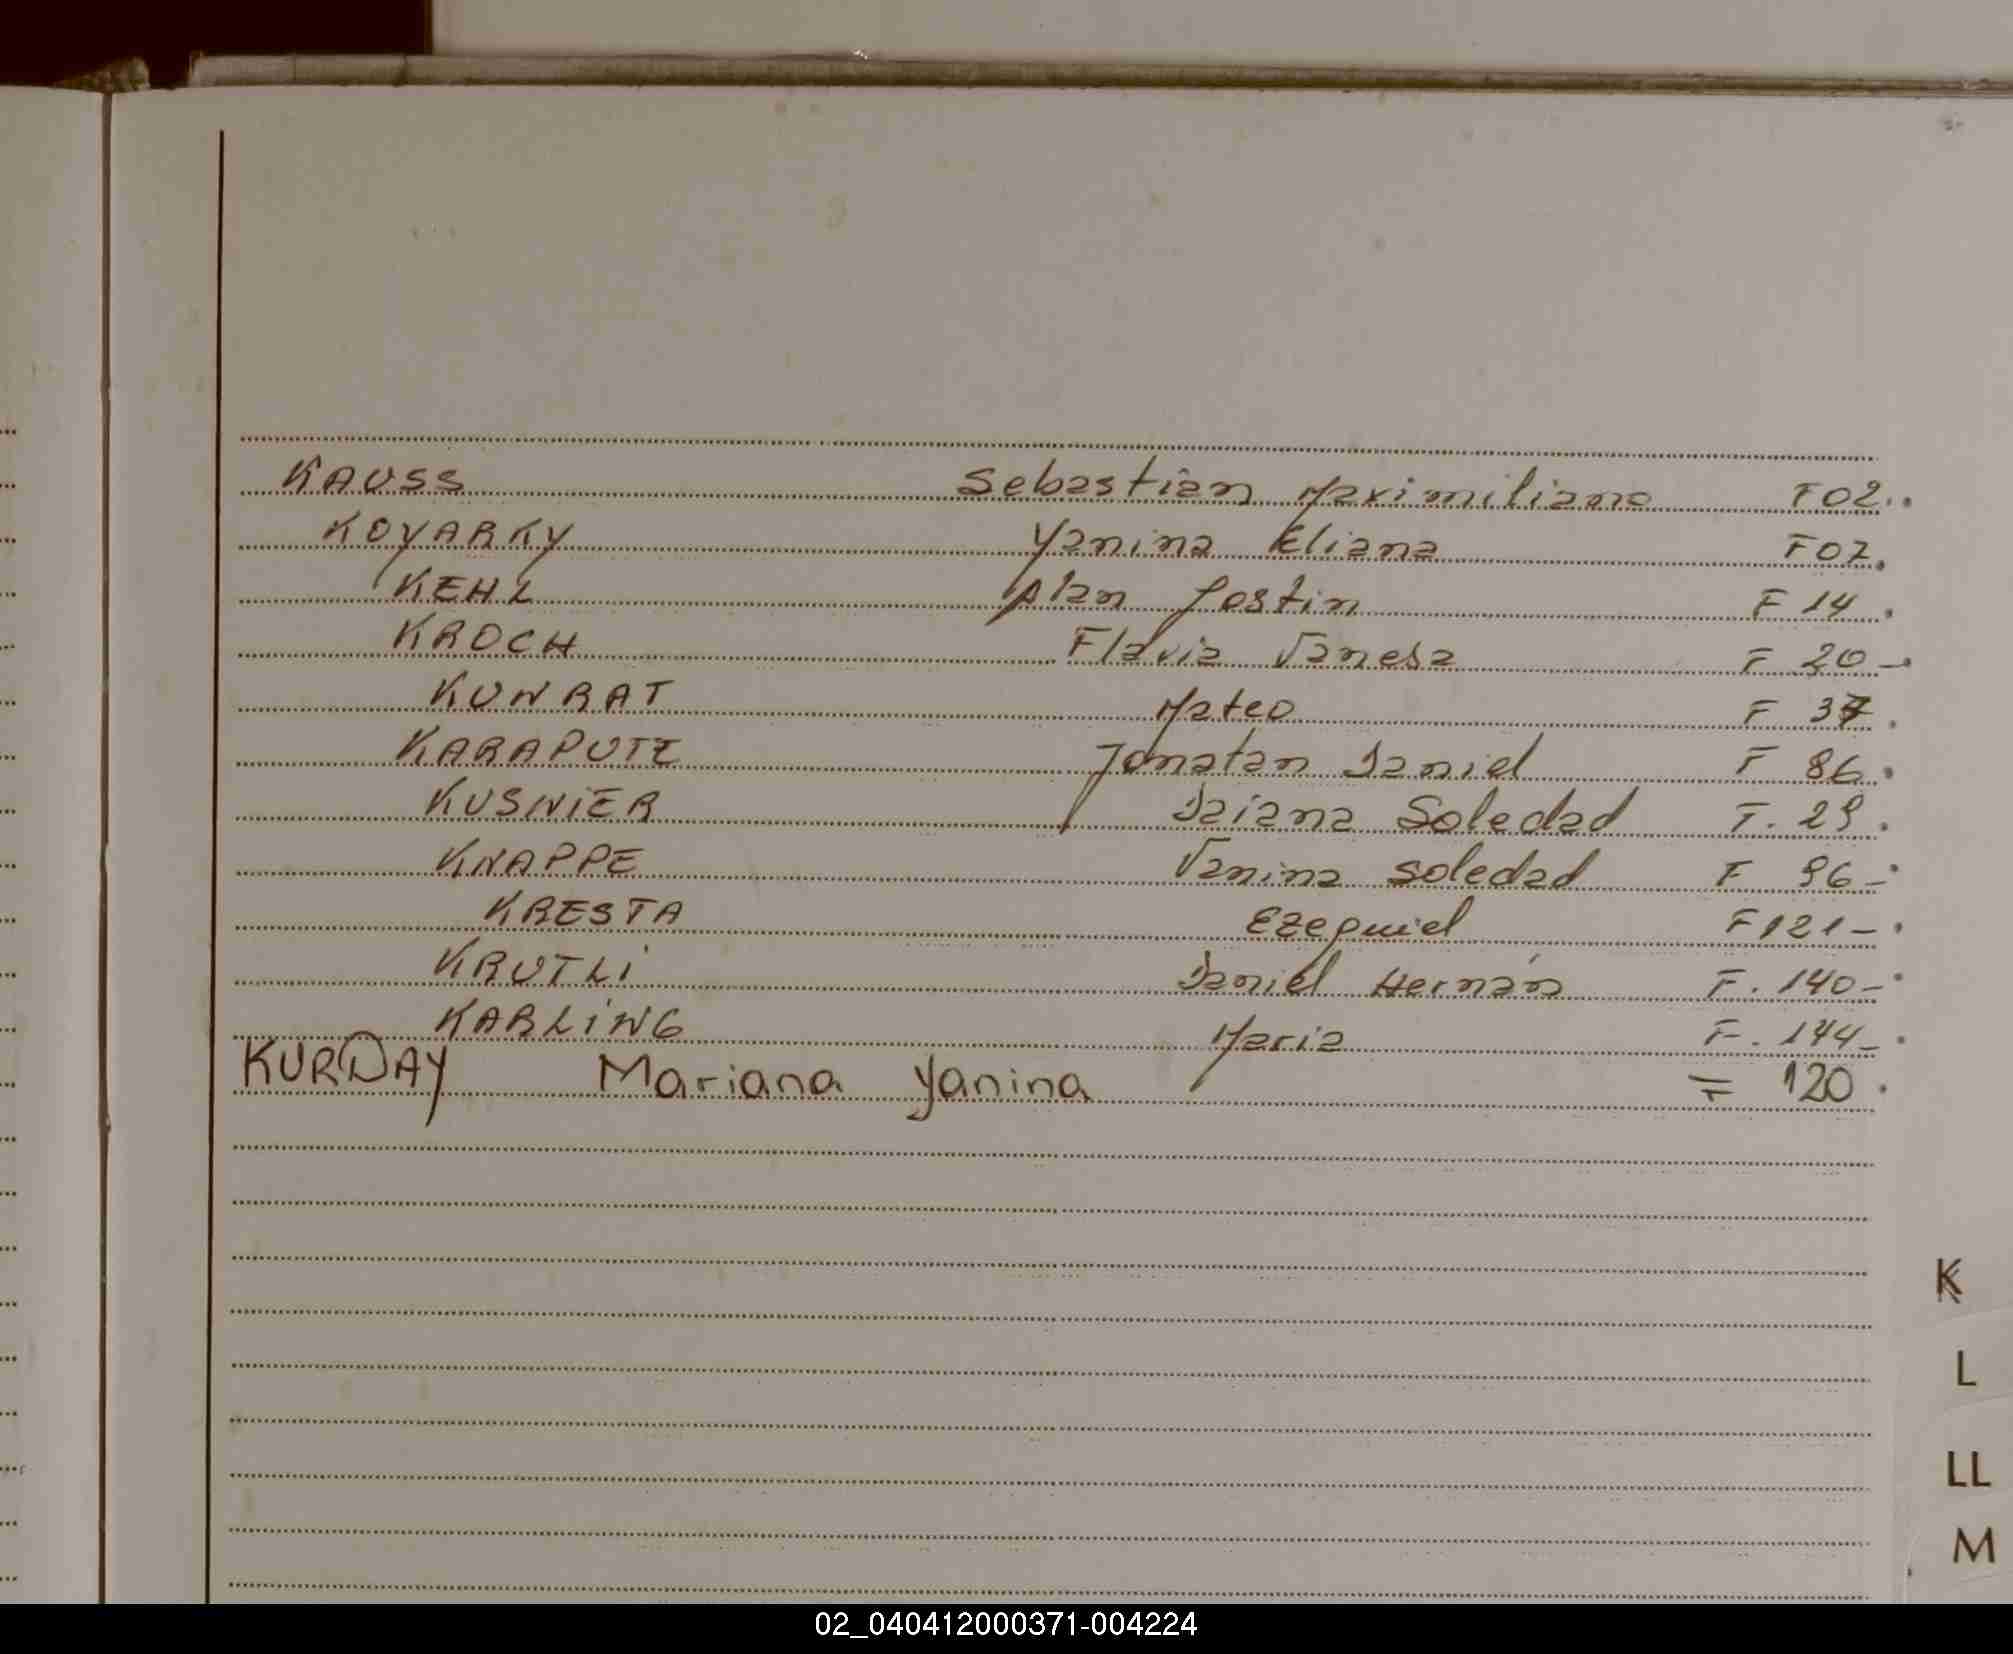 KAUSS Sebastian Maximiliano F 02.
KOYARKY Yanina Eliana F 07.
KEHL Alan Jostin F 14.
KROCH Flavia Vanesa F 20-
KUNRAT Mateo F 37.
KARAPUTZ Jonatan Daniel F 86.
KUSNiER Daiana Soledad F. 29.
KNAPPE Vanina Soledad F 96-
KRESTA Ezequiel F 121-
KRUTLi Daniel Hernán F. 140-
KARLiNG Maria F. 144-
KURDAY Mariana Yanina F 120.
K
L
LL
M
02_040412000371-004224